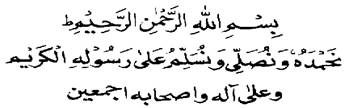 بِسْمِ اللهِ الرَّحْمٰنِ الرَّحِيْمِط
نَحْمَدُهٗ وَنُصَلِّىْ وَنُسَلِّمُ عَلىٰ رَسُوْلِهِ الْكَرِيْمِ
وعلىٰ آله واصحابه اجمعين